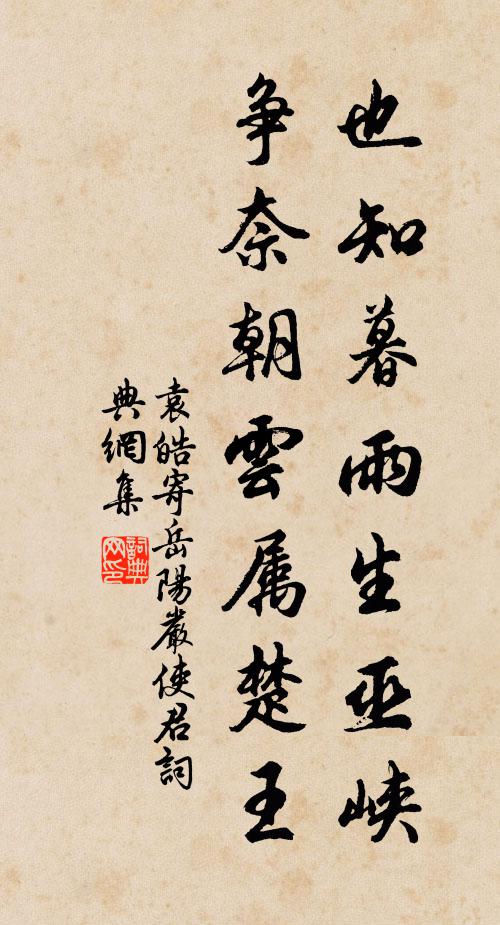 也知暮雨生巫峽
争奈朝雲属楚王
袁皓寄岳陽嚴使君詞
典網集
詞典網印